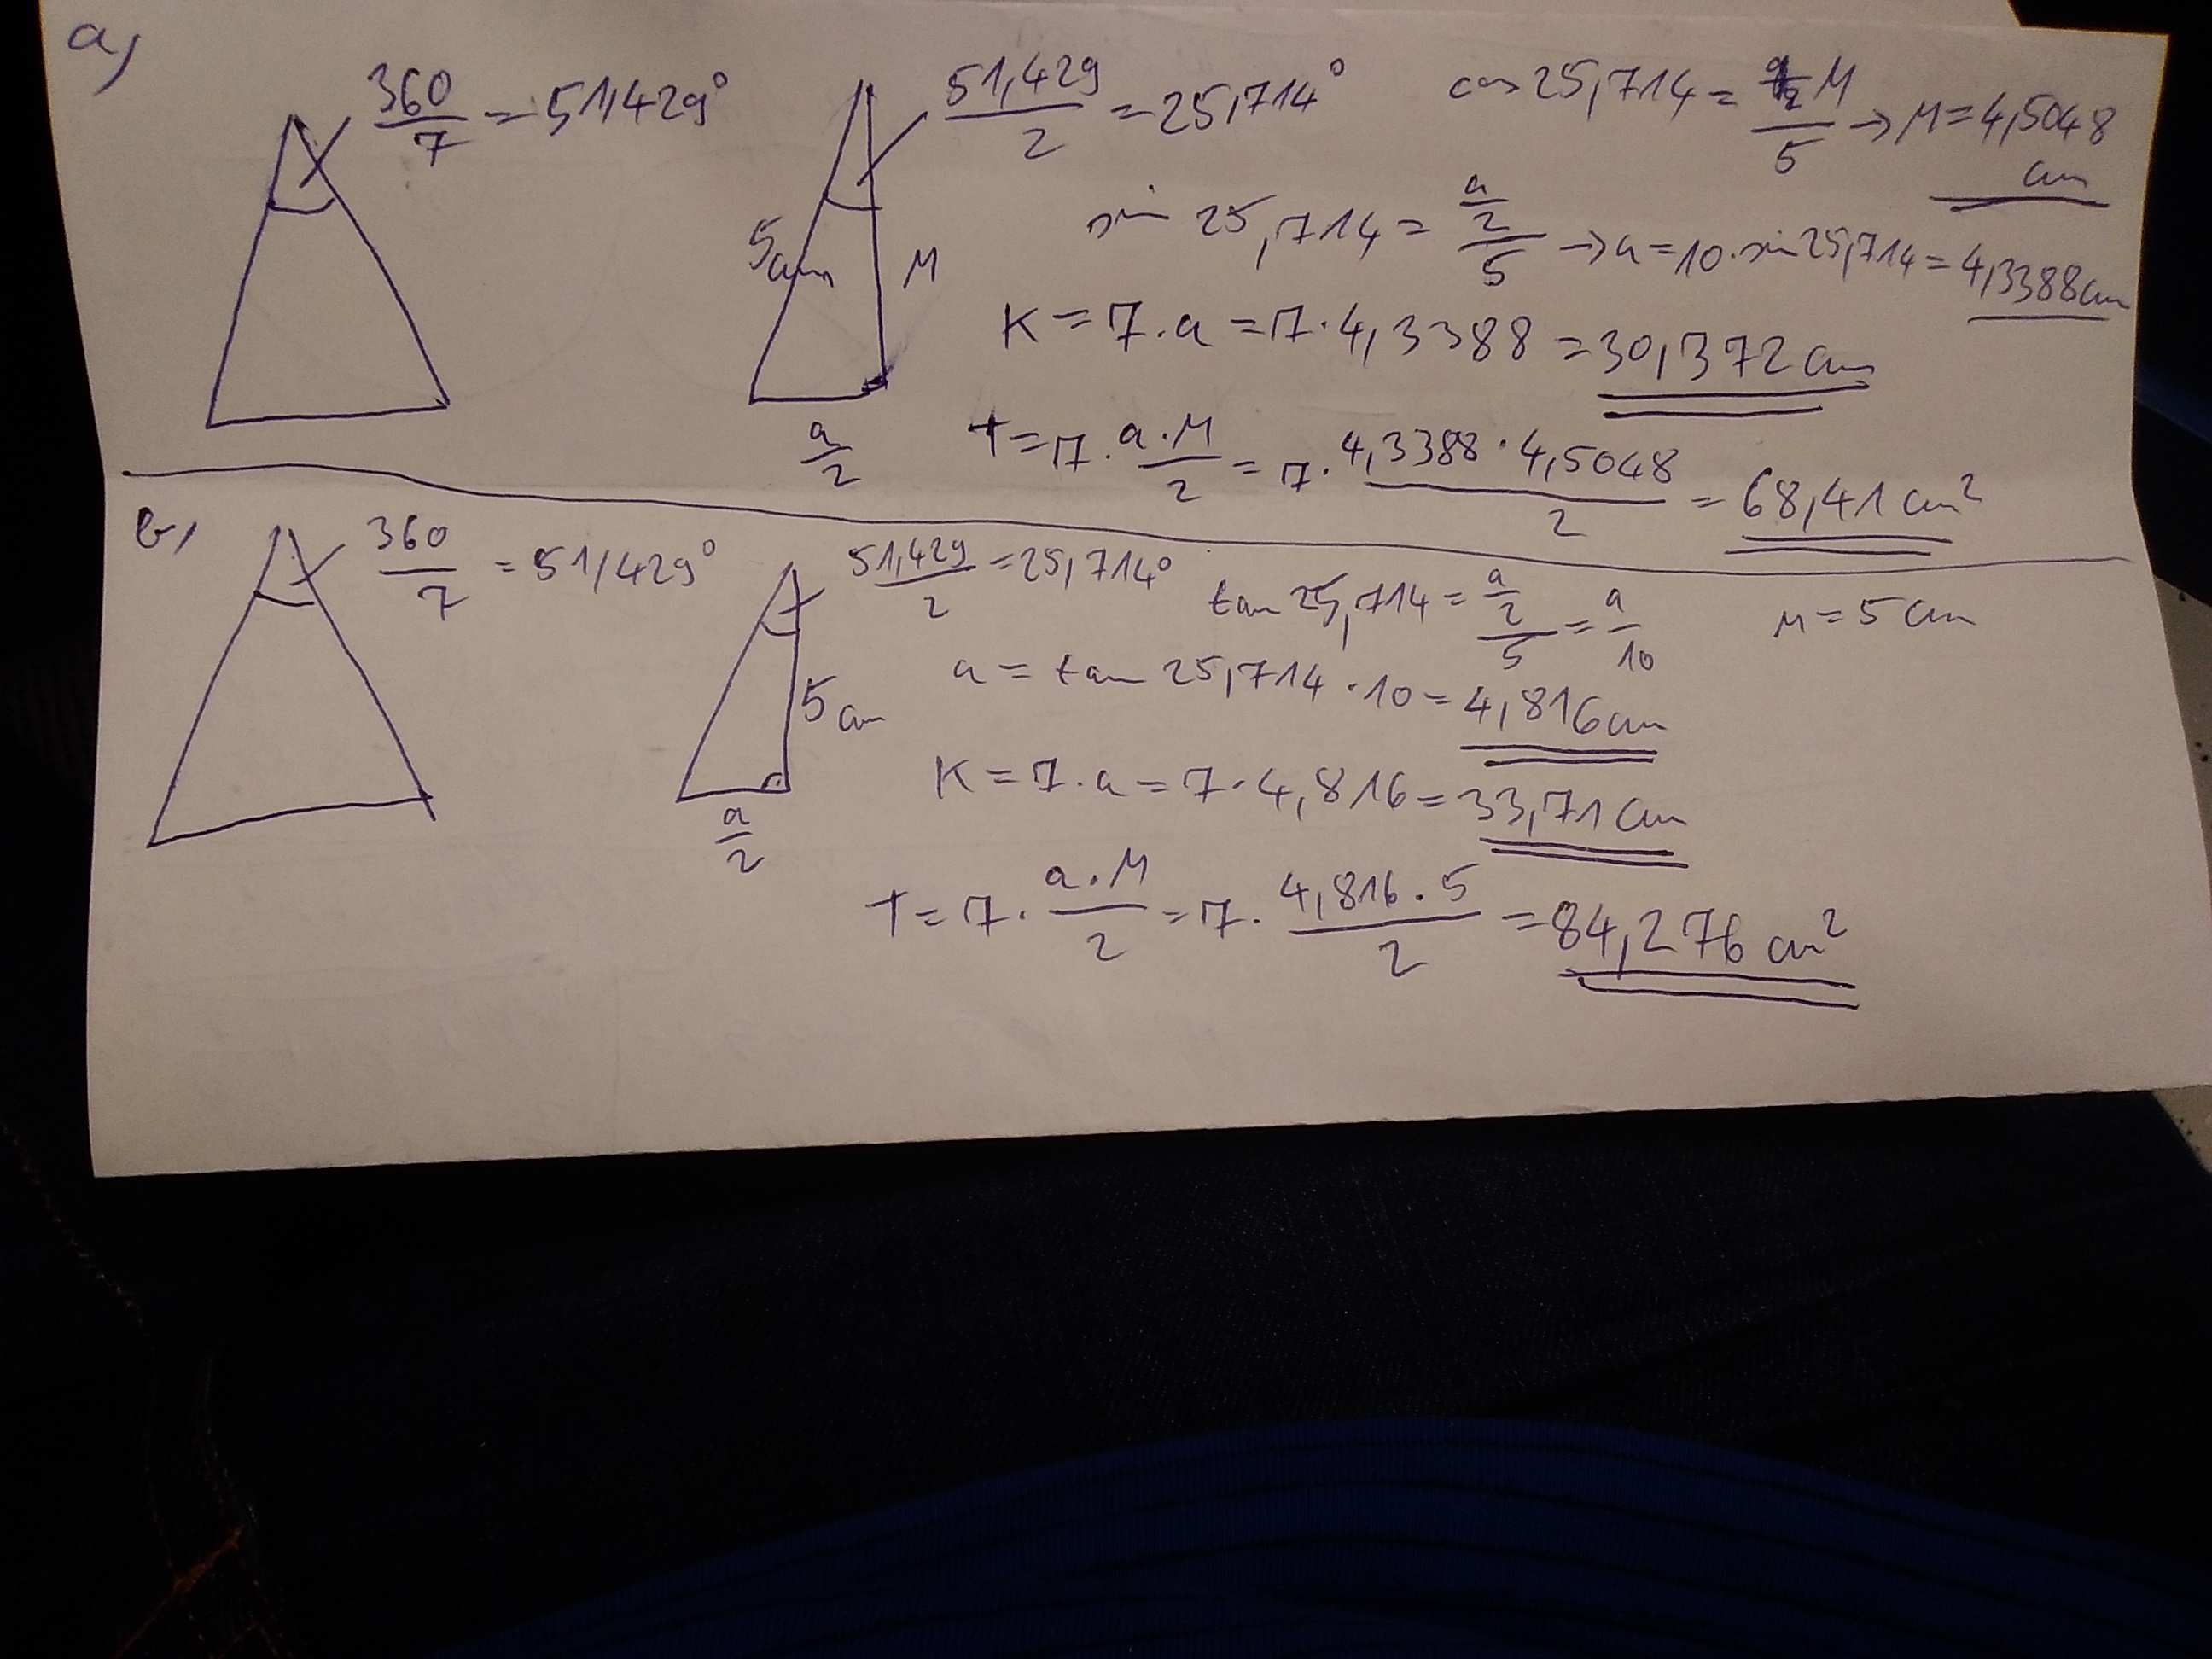 a)
360/7 = 51,429°
51,429/2 = 25,714°
cos 25,714 = M/5 → M = 4,5048 cm
5cm
M
a/2
sin 25,714 = (a/2)/5 → a = 10 · sin 25,714 = 4,3388cm
K = 7 · a = 7 · 4,3388 = 30,372 cm
T = 7 · (a · M)/2 = 7 · (4,3388 · 4,5048)/2 = 68,41 cm²
b)
360/7 = 51,429°
51,429/2 = 25,714°
tan 25,714 = (a/2)/5 = a/10
M = 5 cm
5 cm
a/2
a = tan 25,714 · 10 = 4,816cm
K = 7 · a = 7 · 4,816 = 33,71 cm
T = 7 · (a · M)/2 = 7 · (4,816 · 5)/2 = 84,276 cm²